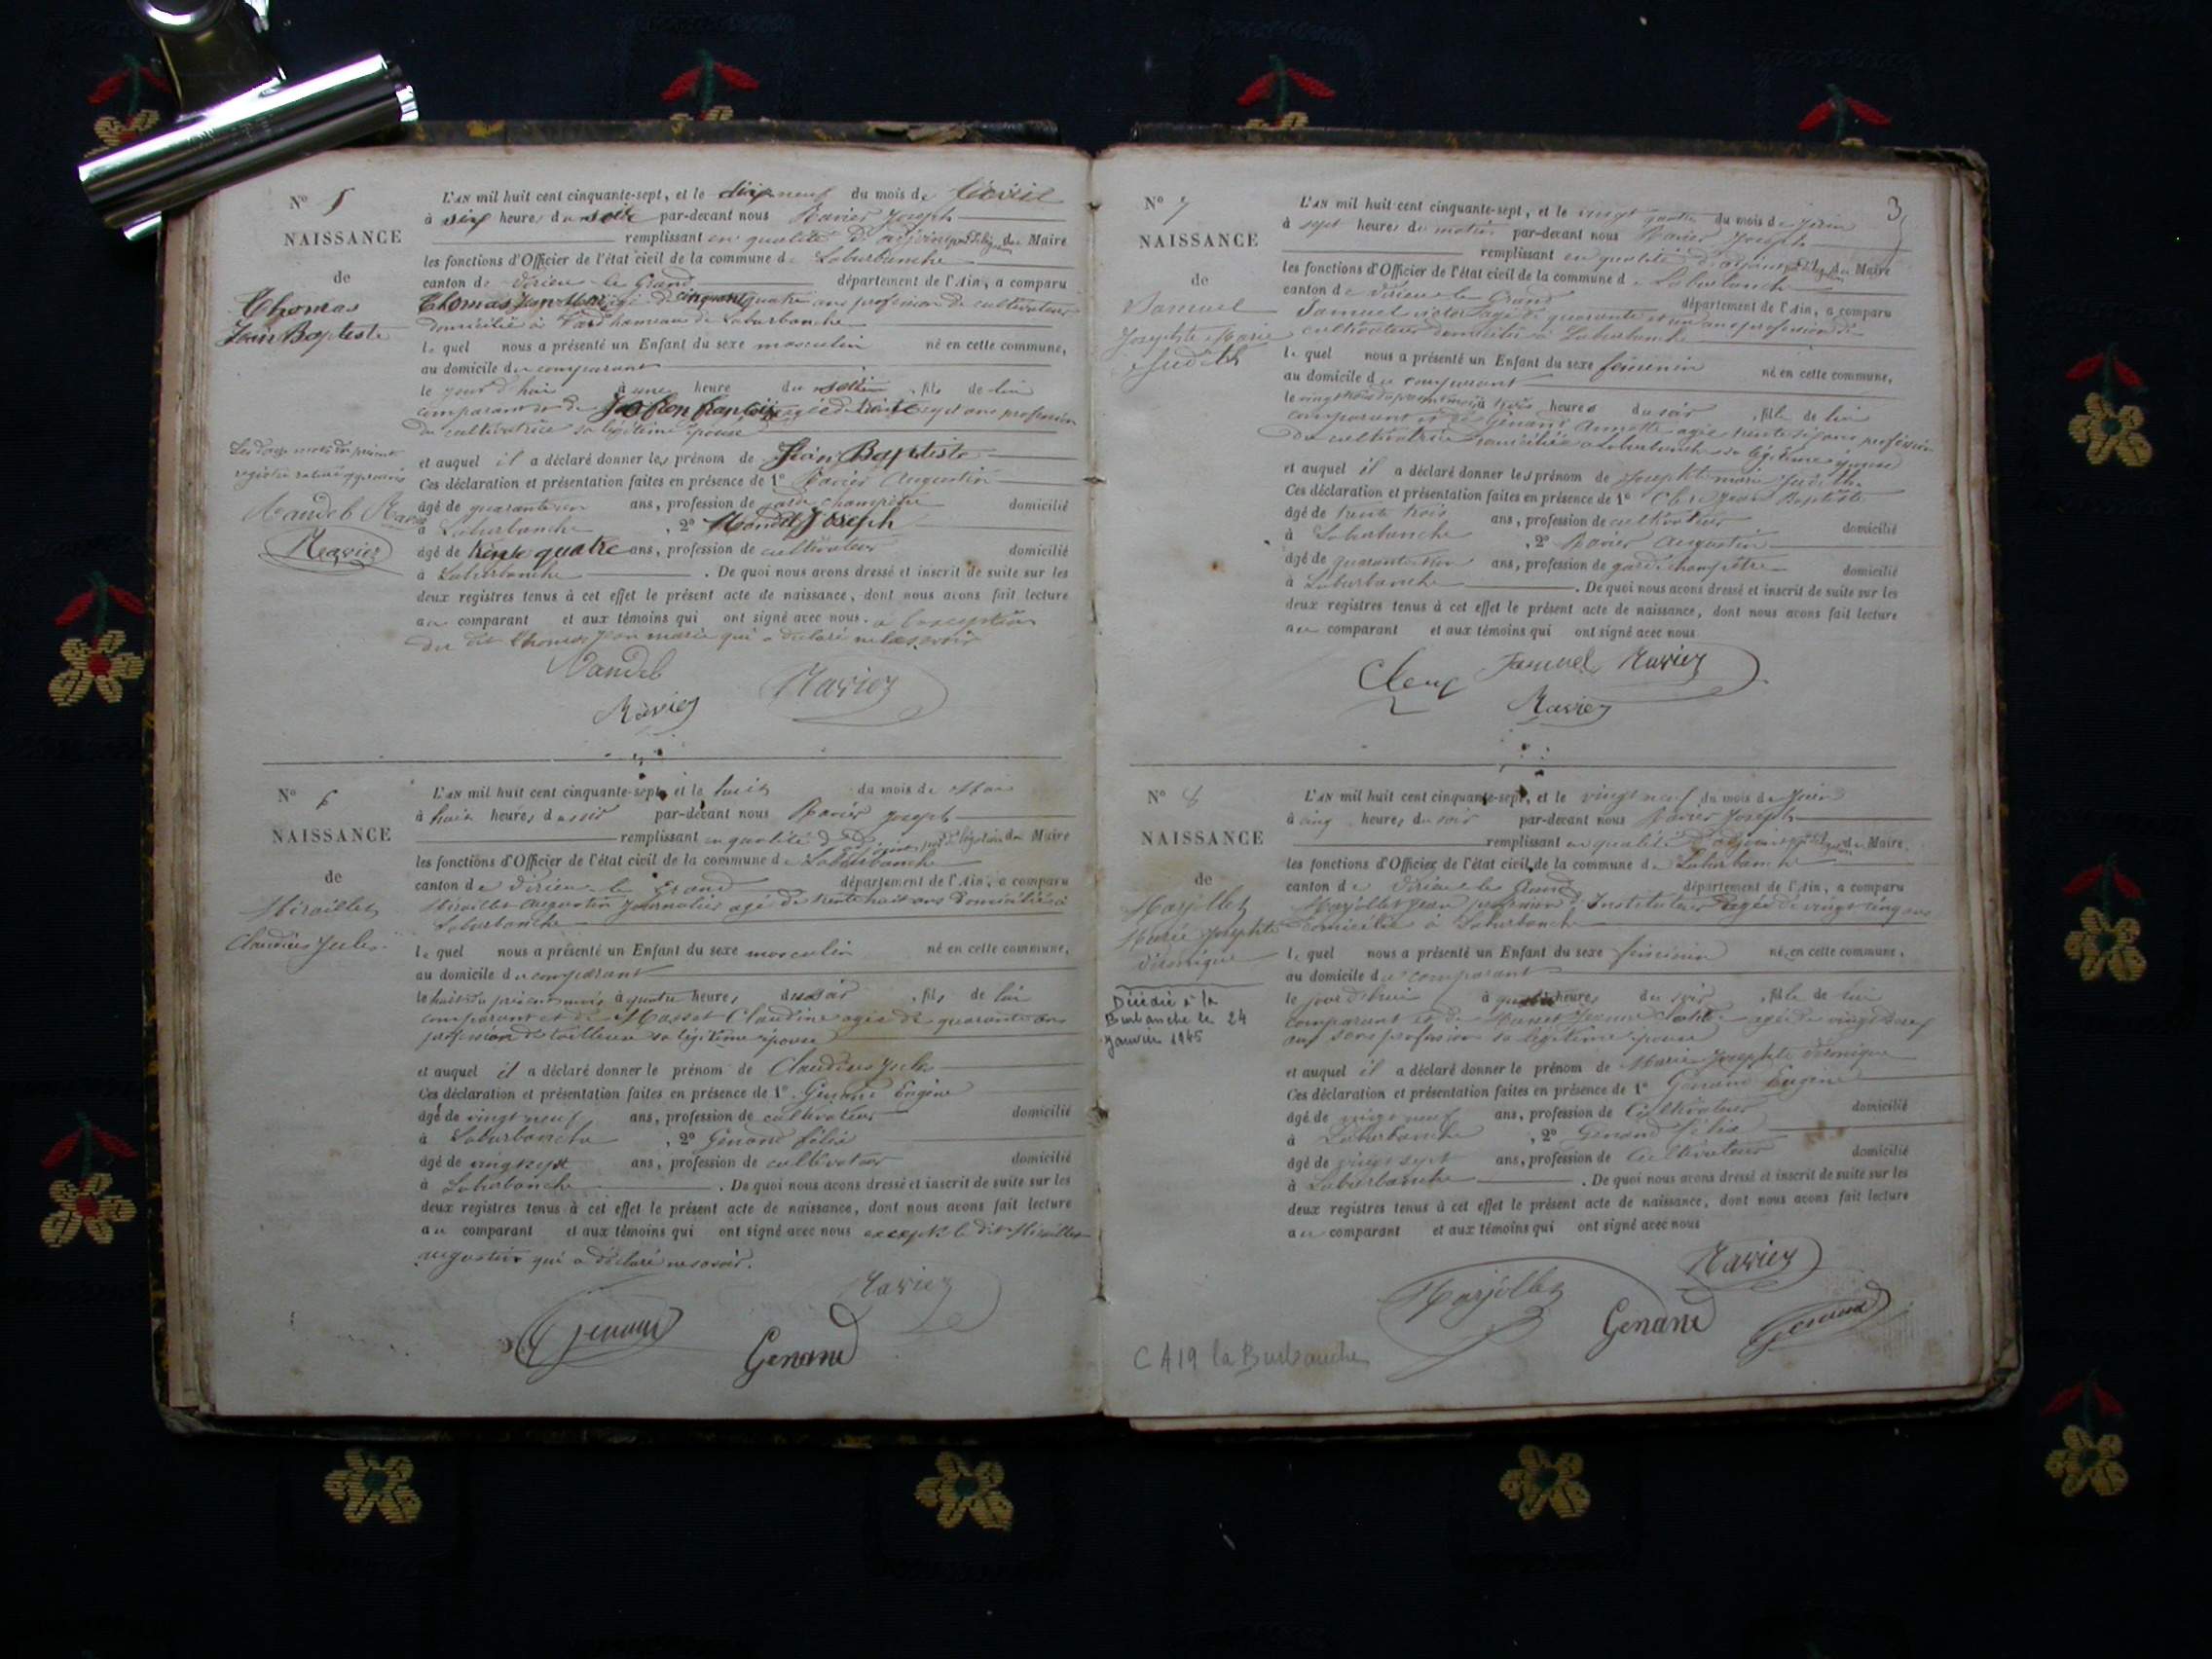 N° 5
NAISSANCE
de
Thomas
Jean Baptiste
L'AN mil huit cent cinquante-sept, et le dix neuf du mois de
à six heures du soir par-devant nous Ravier Joseph
remplissant en qualité d'adjoint du Maire
les fonctions d'Officier de l'état civil de la commune de Laburbanche
canton de Virieu le Grand département de l'Ain, a comparu
Thomas Jean Marie âgé de cinquante quatre ans profession de cultivateur
domicilié à hameau de Laburbanche
lequel nous a présenté un Enfant du sexe masculin né en cette commune,
au domicile du comparant
le jour d'hui à une heure du , fils de lui
comparant et de françoise âgée de trente sept ans profession
de cultivatrice sa légitime épouse
et auquel il a déclaré donner les prénom de Jean Baptiste
Ces déclaration et présentation faites en présence de 1° Ravier Augustin
âgé de quarante un ans, profession de garde champêtre domicilié
à Laburbanche , 2° Joseph
âgé de trente quatre ans, profession de cultivateur domicilié
à Laburbanche . De quoi nous avons dressé et inscrit de suite sur les
deux registres tenus à cet effet le présent acte de naissance, dont nous avons fait lecture
au comparant et aux témoins qui ont signé avec nous. à l'exception
du dit Thomas Jean marie qui a déclaré ne le savoir
Ravier
Ravier
N° 6
NAISSANCE
de
Miraillet
Claudius Jules
L'AN mil huit cent cinquante-sept, et le huit du mois de Mai
à huit heures du soir par-devant nous Ravier Joseph
remplissant en qualité d'adjoint par délégation du Maire
les fonctions d'Officier de l'état civil de la commune de Laburbanche
canton de Virieu le Grand département de l'Ain, a comparu
Miraillet Augustin journalier âgé de trente huit ans domicilié à
Laburbanche
lequel nous a présenté un Enfant du sexe masculin né en cette commune,
au domicile du comparant
le huit du présent mois à quatre heures du soir , fils de lui
comparant et de Masset Claudine âgée de quarante ans
profession de tailleuse sa légitime épouse
et auquel il a déclaré donner le prénom de Claudius Jules
Ces déclaration et présentation faites en présence de 1° Genand Eugène
âgé de vingt neuf ans, profession de cultivateur domicilié
à Laburbanche , 2° Genand Félix
âgé de vingt sept ans, profession de cultivateur domicilié
à Laburbanche . De quoi nous avons dressé et inscrit de suite sur les
deux registres tenus à cet effet le présent acte de naissance, dont nous avons fait lecture
au comparant et aux témoins qui ont signé avec nous excepté le dit Miraillet
augustin qui a déclaré ne savoir.
Ravier
Genand
Genand
3
N° 7
NAISSANCE
de
Samuel
Josephte Marie
Judith
L'AN mil huit cent cinquante-sept, et le vingt quatre du mois de Juin
à sept heures du matin par-devant nous Ravier Joseph
remplissant en qualité d'adjoint du Maire
les fonctions d'Officier de l'état civil de la commune de Laburbanche
canton de Virieu le Grand département de l'Ain, a comparu
Samuel victor âgé de quarante et un ans profession de
cultivateur domicilié à Laburbanche
lequel nous a présenté un Enfant du sexe féminin né en cette commune,
au domicile du comparant
le vingt trois du présent mois à trois heures du soir , fille de lui
comparant et de Genand Annette âgée trente six ans profession
de cultivatrice domiciliée à Laburbanche sa légitime épouse
et auquel il a déclaré donner les prénom de Josephte marie Judith
Ces déclaration et présentation faites en présence de 1° Clerc Jean Baptiste
âgé de trente trois ans, profession de cultivateur domicilié
à Laburbanche , 2° Ravier Augustin
âgé de quarante un ans, profession de garde champêtre domicilié
à Laburbanche . De quoi nous avons dressé et inscrit de suite sur les
deux registres tenus à cet effet le présent acte de naissance, dont nous avons fait lecture
au comparant et aux témoins qui ont signé avec nous
Clerc Samuel Ravier
Ravier
N° 8
NAISSANCE
de
Marjollet
Marie Josephte
Véronique
Décédée à la
Burbanche le 24
janvier 1945
L'AN mil huit cent cinquante-sept, et le vingt neuf du mois de Juin
à cinq heures du soir par-devant nous Ravier Joseph
remplissant en qualité d'adjoint du Maire
les fonctions d'Officier de l'état civil de la commune de Laburbanche
canton de Virieu le Grand département de l'Ain, a comparu
Marjollet Jean profession d'Instituteur âgé de vingt cinq ans
domicilié à Laburbanche
lequel nous a présenté un Enfant du sexe féminin né en cette commune,
au domicile du comparant
le jour d'hui à quatre heures du soir , fille de lui
comparant et de âgée de vingt neuf
ans sans profession sa légitime épouse
et auquel il a déclaré donner le prénom de Marie Josephte Véronique
Ces déclaration et présentation faites en présence de 1° Genand Eugène
âgé de vingt neuf ans, profession de Cultivateur domicilié
à Laburbanche , 2° Genand Félix
âgé de vingt sept ans, profession de Cultivateur domicilié
à Laburbanche . De quoi nous avons dressé et inscrit de suite sur les
deux registres tenus à cet effet le présent acte de naissance, dont nous avons fait lecture
au comparant et aux témoins qui ont signé avec nous
Ravier
Marjollet
Genand
Genand
C A19 la Burbanche